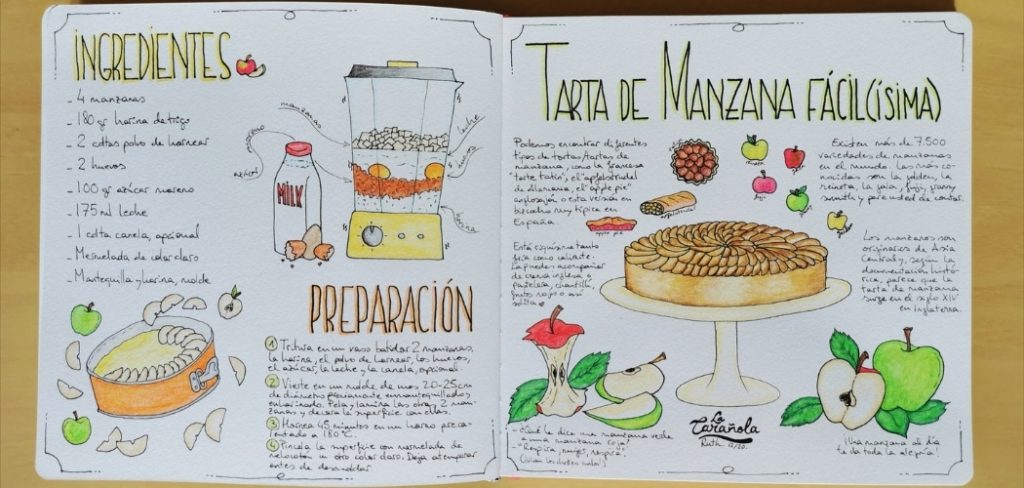 INGREDIENTES
- 4 manzanas
- 180 gr harina de trigo
- 2 cdtas polvo de hornear
- 2 huevos
- 100 gr azúcar moreno
- 175 ml leche
- 1 cdta canela, opcional
- Mermelada de color claro
- Mantequilla y harina, molde
manzanas
leche
huevos
harina
azúcar
MILK
PREPARACIÓN
1 Tritura en un vaso batidor 2 manzanas,
la harina, el polvo de hornear, los huevos,
el azúcar, la leche y la canela, opcional.
2 Vierte en un molde de unos 20-25cm
de diámetro previamente enmantequillado y
enharinado. Pela y lamina las otras 2 man-
zanas y decora la superficie con ellas.
3 Hornea 45 minutos en un horno preca-
lentado a 180ºC.
4 Pincela la superficie con mermelada de
melocotón u otro color claro. Deja atemperar
antes de desmoldar.
TARTA DE MANZANA FÁCIL(ÍSIMA)
Podemos encontrar diferentes
tipos de tortas/tartas de
manzana, como la francesa
"tarte tatin", el "apfelstrudel"
de Alemania, el "apple pie"
anglosajón o esta versión en
bizcocho muy típica en
España.
Está exquisita tanto
fría como caliente.
La puedes acompañar
de crema inglesa o
pastelera, chantilly,
frutos rojos o así
solita
apple pie
Existen más de 7.500
variedades de manzanas
en el mundo. Las más co-
nocidas son la golden, la
reineta, la gala, fuji, granny
smith y pare usted de contar.
Los manzanos son
originarios de Asia
Central y, según la
documentación histó-
rica, parece que la
tarta de manzana
surge en el siglo XIV
en Inglaterra.
- ¿Qué le dice una manzana verde
a una manzana roja?
- "Respira, amiga, respira".
La Tarañola
Ruth
¡Una manzana al día
te da toda la alegría!